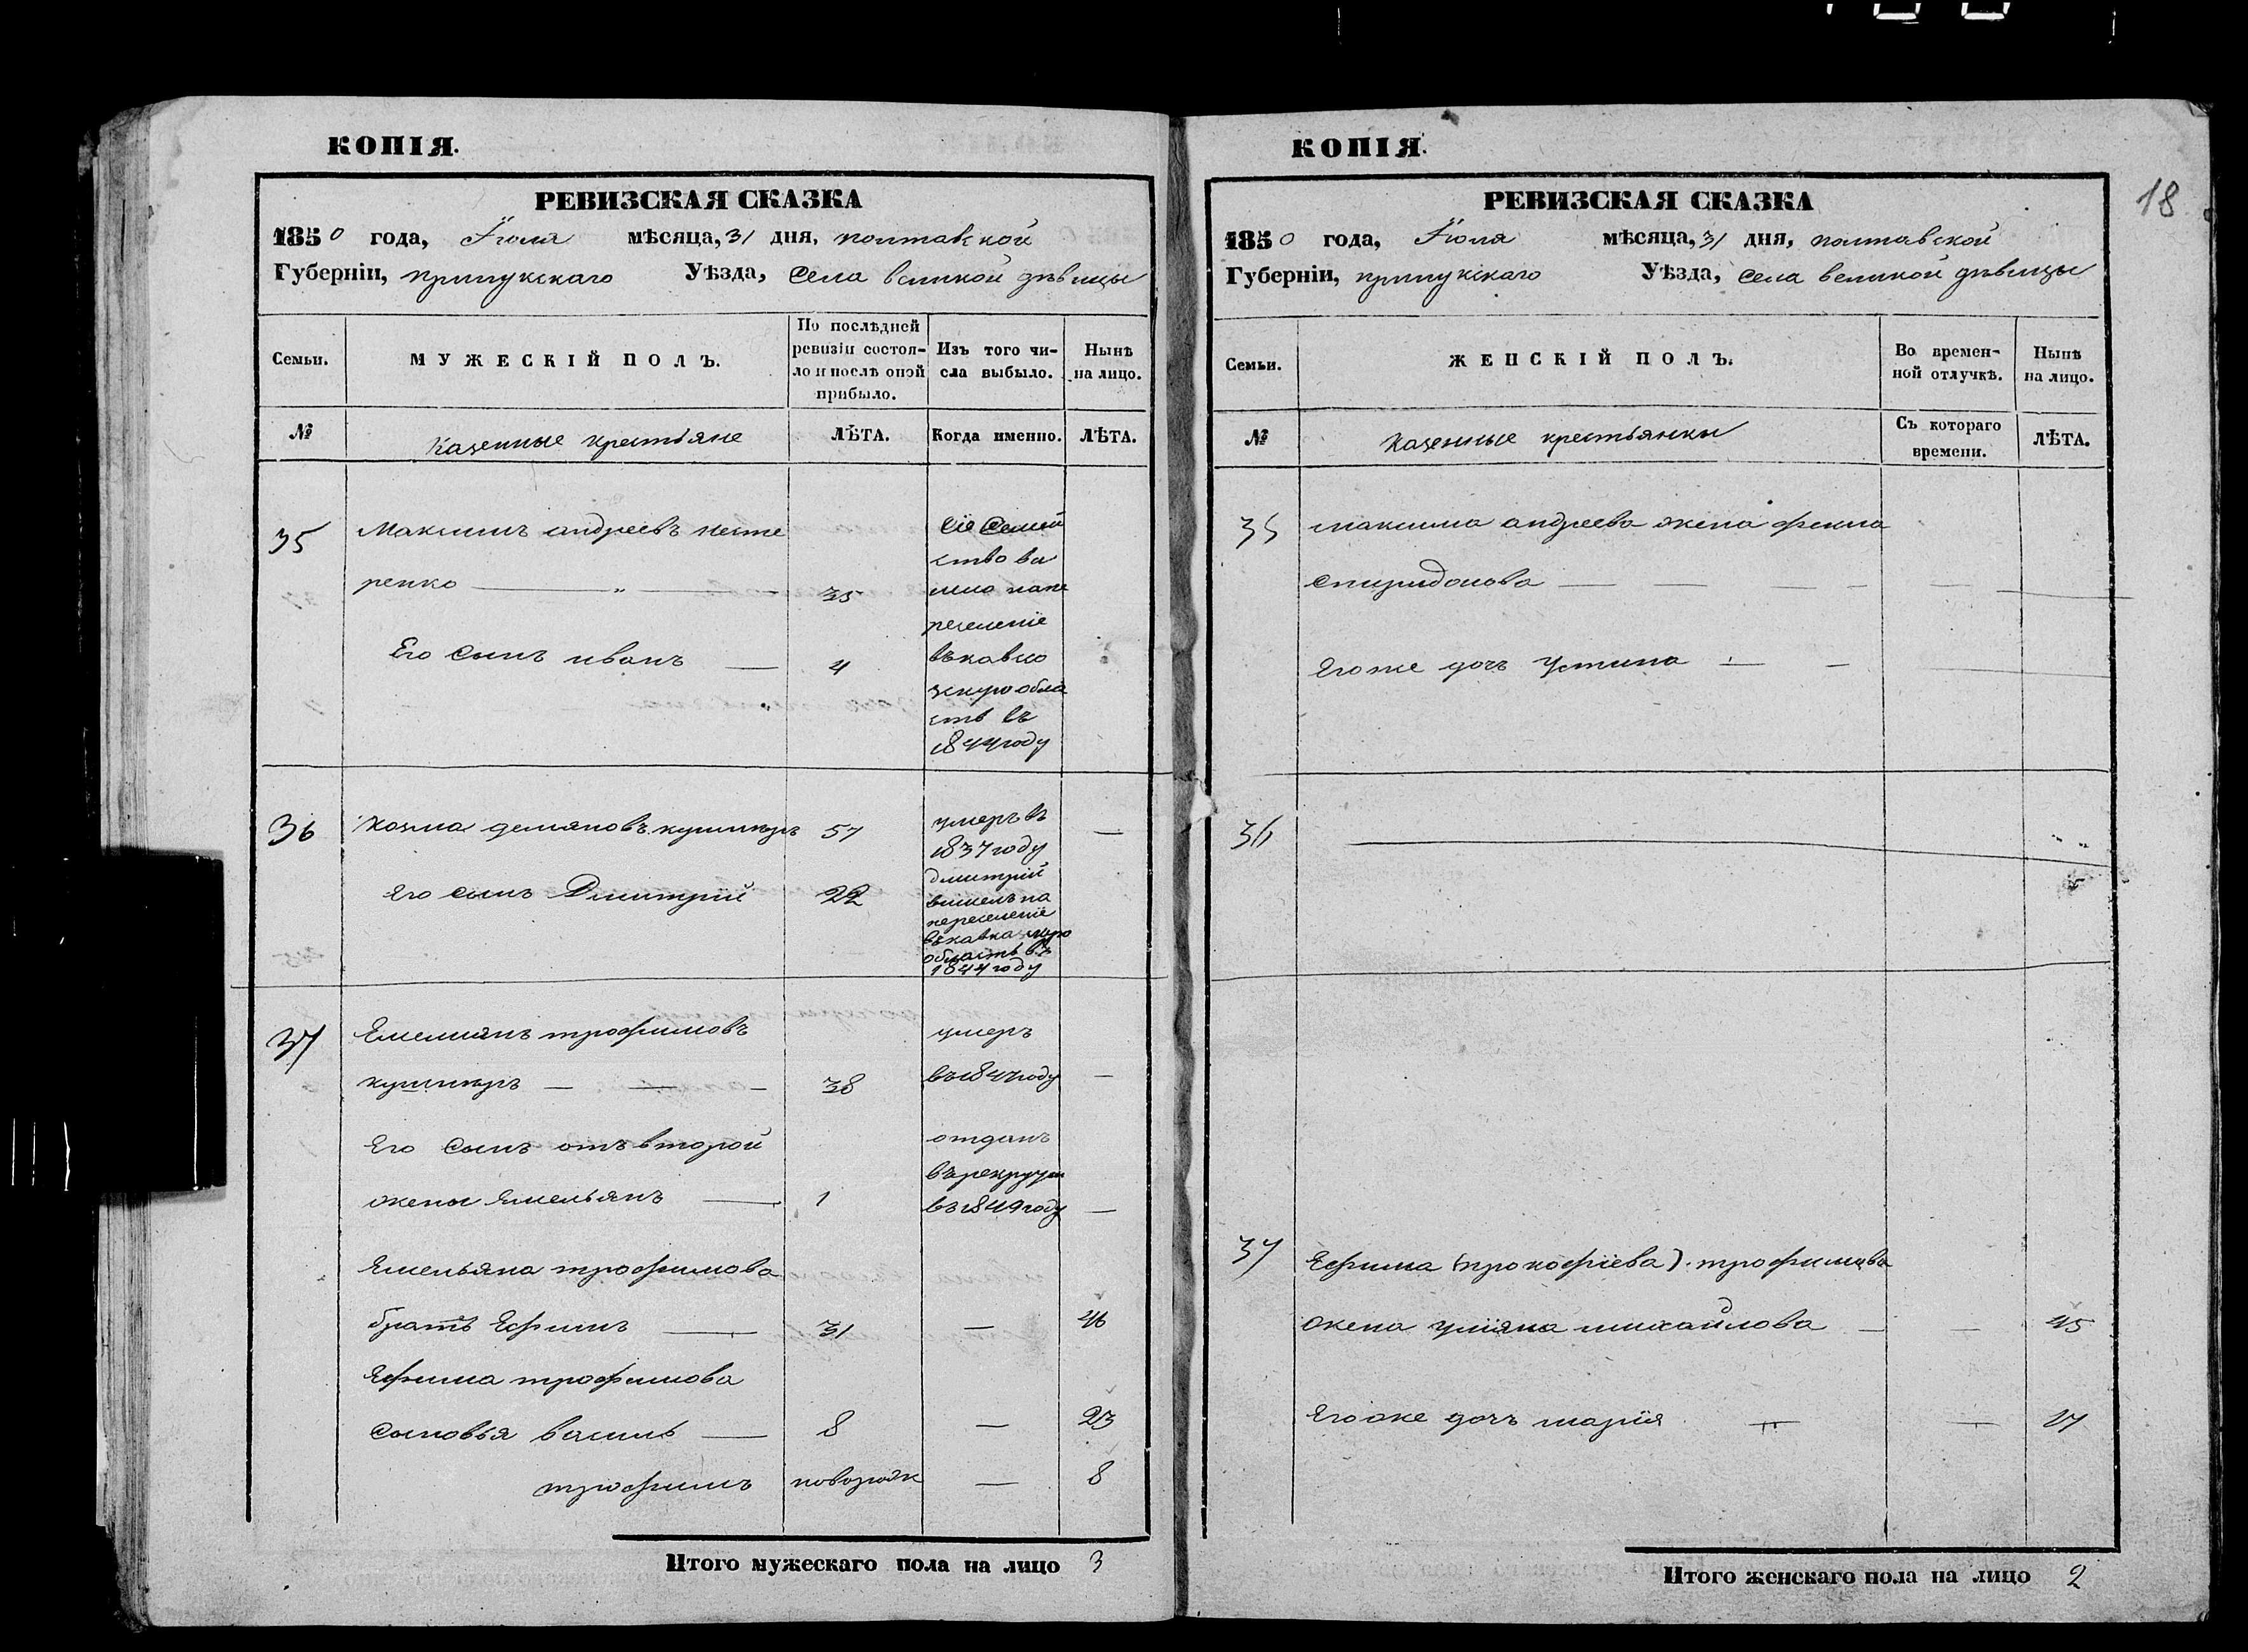 КОПІЯ.
РЕВИЗСКАЯ СКАЗКА
1850 года, Іюля мѣсяца, 31 дня, полтавской
Губерніи, прилукскаго Уѣзда, села великой дѣвицы
Семьи.
МУЖЕСКІЙ ПОЛЪ.
По послѣдней
ревизіи состоя-
ло и послѣ оной
прибыло.
Изъ того чи-
сла выбыло.
Нынѣ
на лицо.
№
Казенные крестьяне
ЛѢТА.
Когда именно.
ЛѢТА.
35
Максимъ андреевъ несте
ренко 35
Его Сынъ иванъ 4
Сіе Семей
ство
на пе
реселеніе
въ кавка
зкую обла
сть въ
1844 году
36 Козма демяновъ 57
умеръ въ
1837 году —
Его сынъ Дмитрій 22
дмитрій
вишелъ на
переселеніе
въ кавказкую
область въ
1844 году
37
Емельянъ трофимовъ
38
умеръ
въ 1847 году —
Его Сынъ отъ второй
жены Емельянъ 1
отданъ
въ рекруты
въ 1849 году —
Емельяна трофимова
братъ Ефимъ 31 — 46
Ефима трофимова
Сыновья василь 8 — 23
трофимъ новорож — 8
Итого мужескаго пола на лицо 3
КОПІЯ.
18
РЕВИЗСКАЯ СКАЗКА
1850 года, Іюля мѣсяца, 31 дня, полтавской
Губерніи, прилукскаго Уѣзда, села великой дѣвицы
Семьи.
ЖЕНСКІЙ ПОЛЪ.
Во времен-
ной отлучкѣ.
Нынѣ
на лицо.
№
Казенные крестьянки
Съ котораго
времени.
ЛѢТА.
35 максима андреева жена фекла
Спиридонова
Его же дочь Устина
36
37 Ефима (прокофіева) трофимова
жена уліяна михайлова — 45
Его же дочь марія — 17
Итого женскаго пола на лицо 2